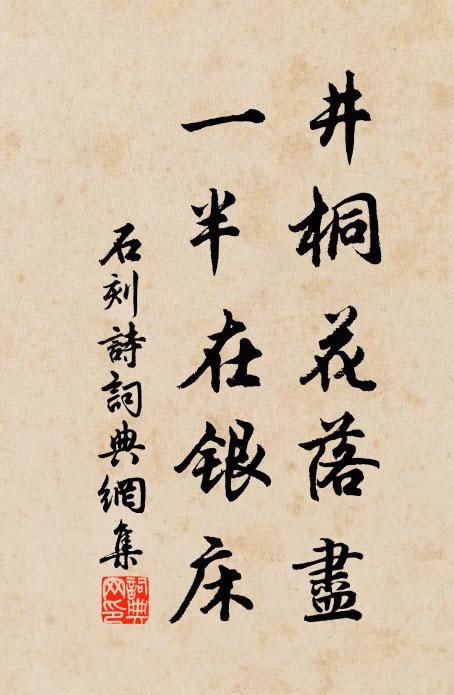 井桐花落盡
一半在銀床
石刻詩詞典網集
詞典
网印